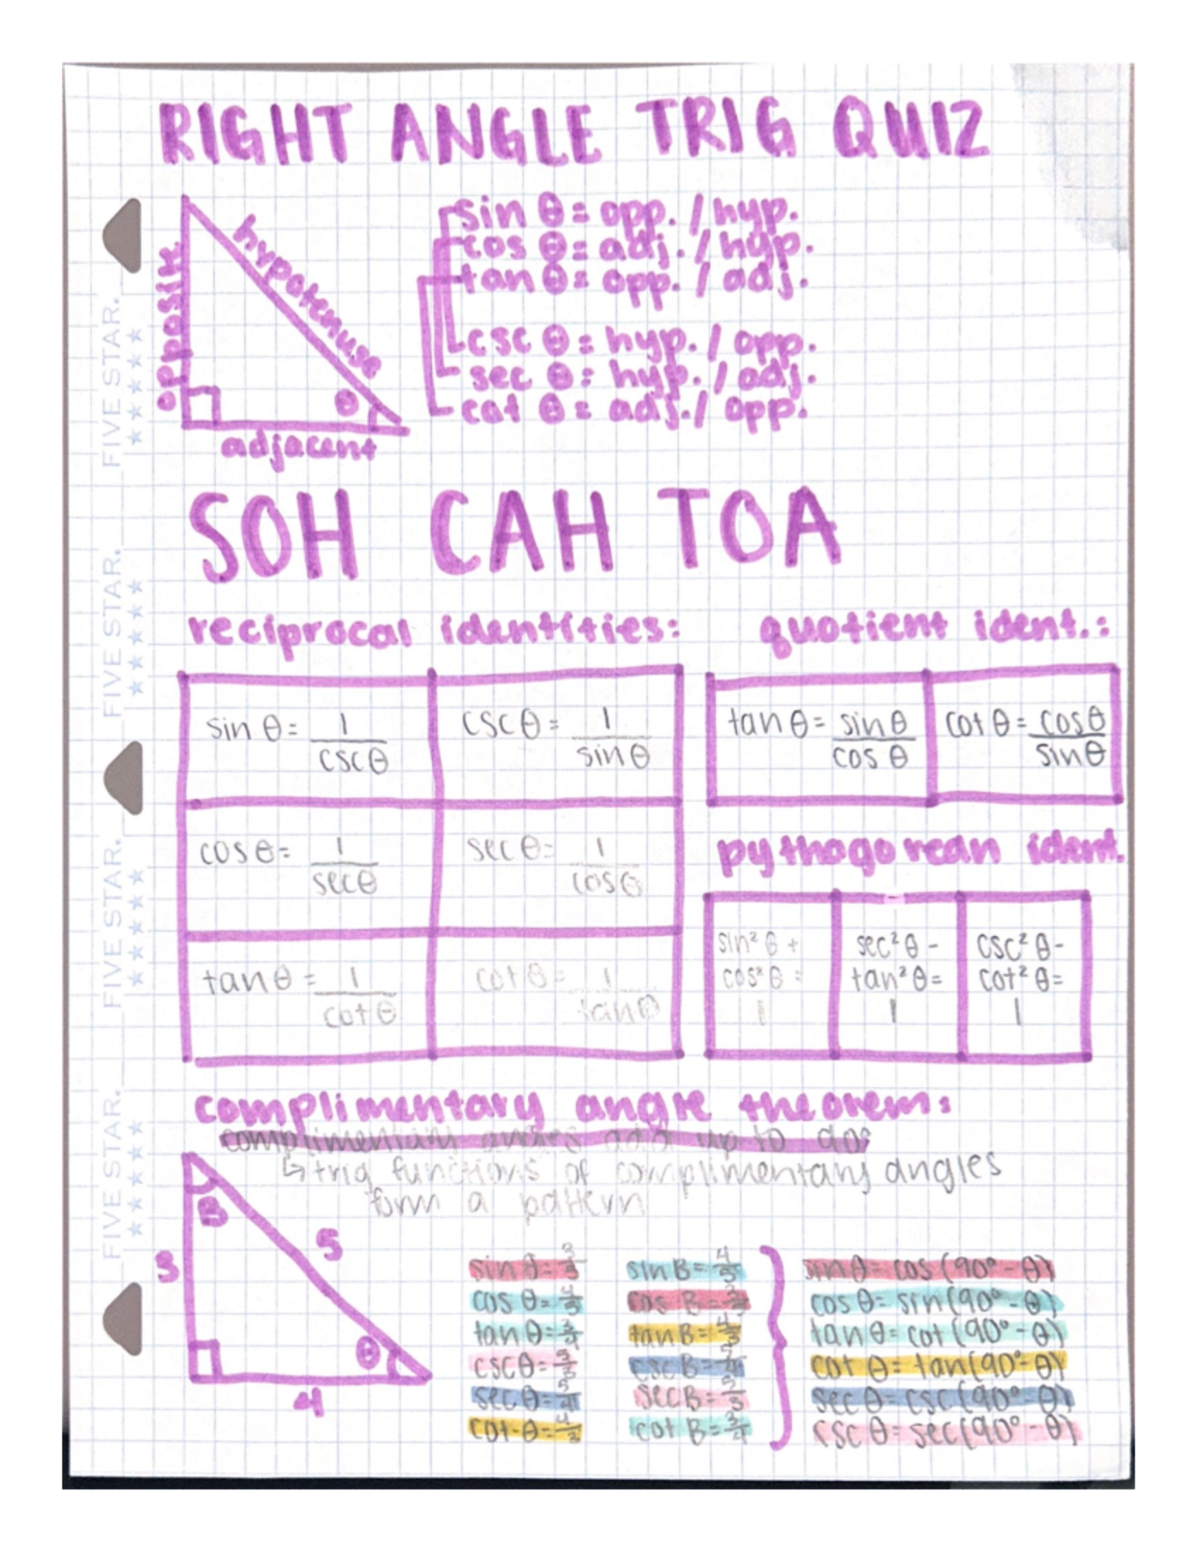 RIGHT ANGLE TRIG QUIZ
opposite
hypotenuse
θ
adjacent
sin θ = opp. / hyp.
cos θ = adj. / hyp.
tan θ = opp. / adj.
csc θ = hyp. / opp.
sec θ = hyp. / adj.
cot θ = adj. / opp.
SOH CAH TOA
reciprocal identities:
sin θ = 1/cscθ
cscθ = 1/sinθ
cosθ = 1/secθ
secθ = 1/cosθ
tanθ = 1/cotθ
cotθ = 1/tanθ
quotient ident.:
tanθ = sinθ/cosθ
cotθ = cosθ/sinθ
pythagorean ident.
sin²θ +
cos²θ =
1
sec²θ -
tan²θ =
1
csc²θ -
cot²θ =
1
complimentary angle theorem:
complimentary angles add up to 90°
↳ trig functions of complimentary angles
form a pattern
B
3
5
θ
4
sinθ = 3/5
cosθ = 4/5
tanθ = 3/4
cscθ =
secθ = 5/4
cotθ = 4/3
sinB = 4/5
cosB = 3/5
tanB = 4/3
cscB = 5/4
secB = 5/3
cotB = 3/4
sinθ = cos(90° - θ)
cosθ = sin(90° - θ)
tanθ = cot(90° - θ)
cotθ = tan(90° - θ)
secθ = csc(90° - θ)
cscθ = sec(90° - θ)
FIVE STAR.
FIVE STAR.
FIVE STAR.
FIVE STAR.